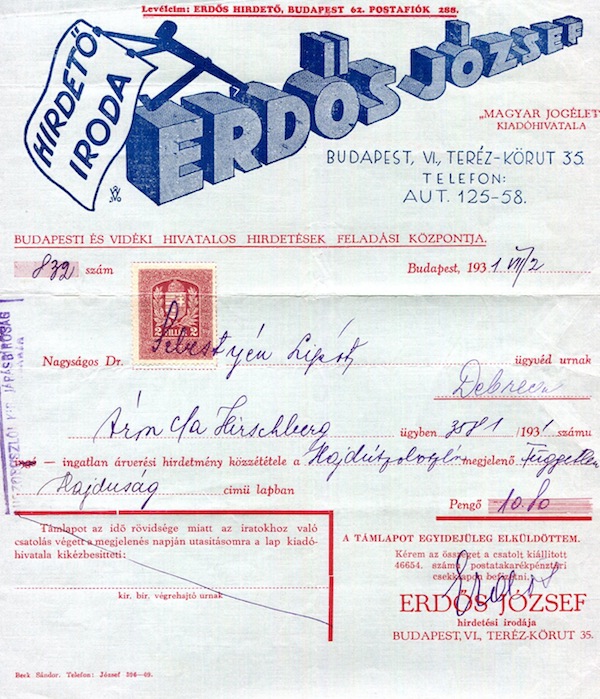 Levélcim: ERDŐS HIRDETŐ, BUDAPEST 62. POSTAFIÓK 288.
HIRDETŐ
IRODA
ERDŐS JÓZSEF
„MAGYAR JOGÉLET"
KIADÓHIVATALA
BUDAPEST, VI., TERÉZ-KÖRUT 35.
TELEFON:
AUT. 125-58.
BUDAPESTI ÉS VIDÉKI HIVATALOS HIRDETÉSEK FELADÁSI KÖZPONTJA.
832 szám
Budapest, 1931 VII/2
2 2
Nagyságos Dr. Sebestyén Lipót ügyvéd urnak
Debrecen
Áron c/a Hirschberg ügyben 1931 számu
ingó — ingatlan árverési hirdetmény közzététele a Hajdúszoboszlón megjelenő Független
Hajduság cimü lapban
Pengő 10.80
Támlapot az idő rövidsége miatt az iratokhoz való
csatolás végett a megjelenés napján utasításomra a lap kiadó-
hivatala kikézbesitteti:
kir. bir. végrehajtó urnak
A TÁMLAPOT EGYIDEJÜLEG ELKÜLDÖTTEM.
Kérem az összeget a csatolt kiállitott
46654. számu postatakarékpénztári
csekklapon befizetni.
Erdős
ERDŐS JÓZSEF
hirdetési irodája
BUDAPEST, VI., TERÉZ-KÖRUT 35.
Beck Sándor. Telefon: József 396—09.